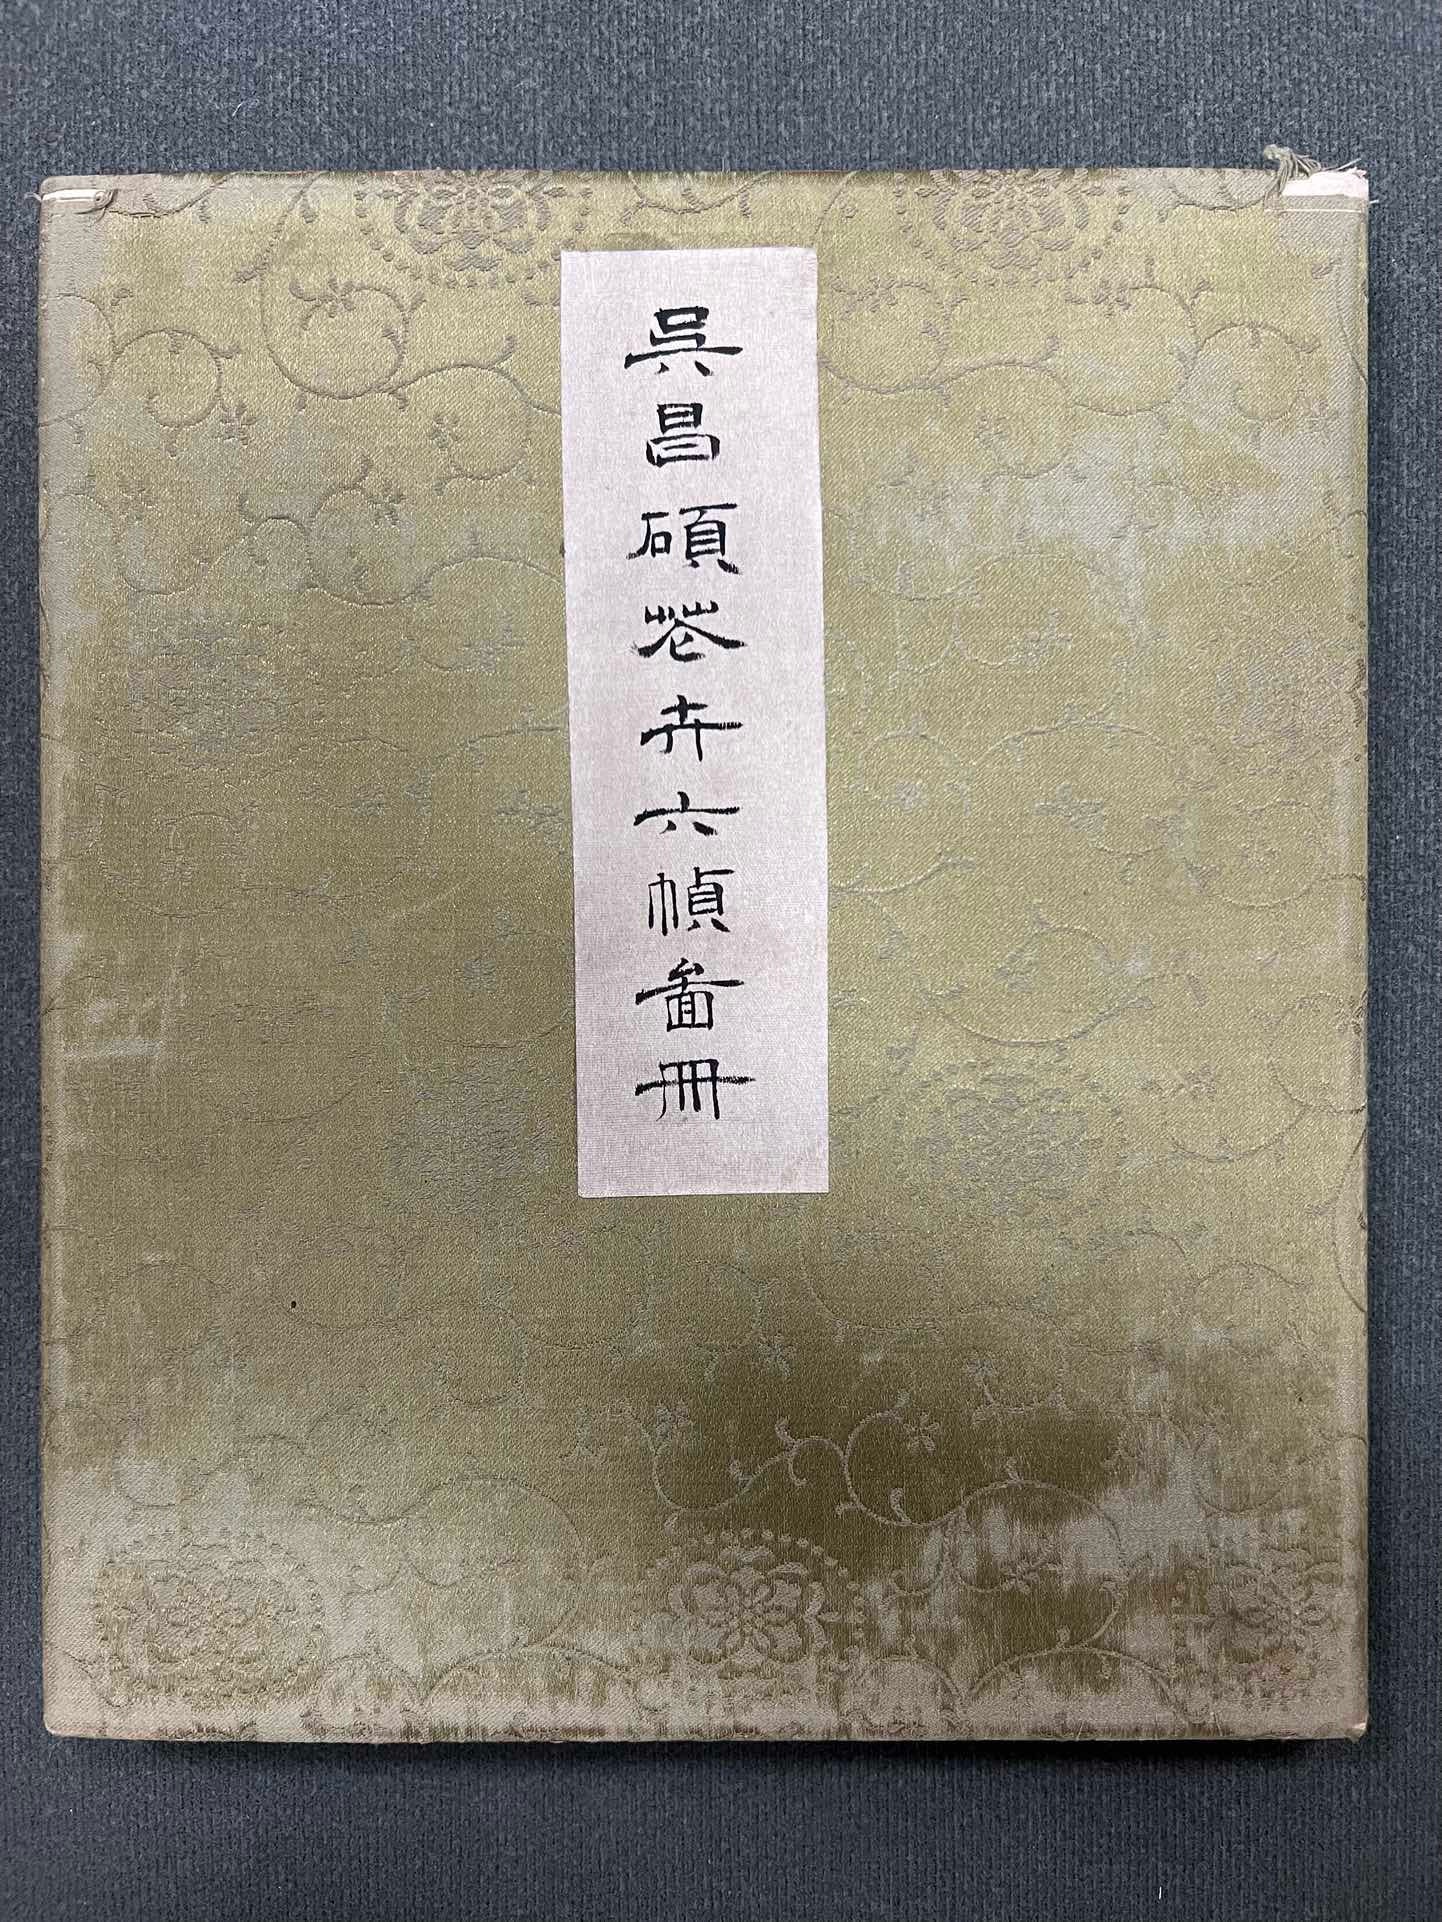 吳昌碩花卉六幀畵冊